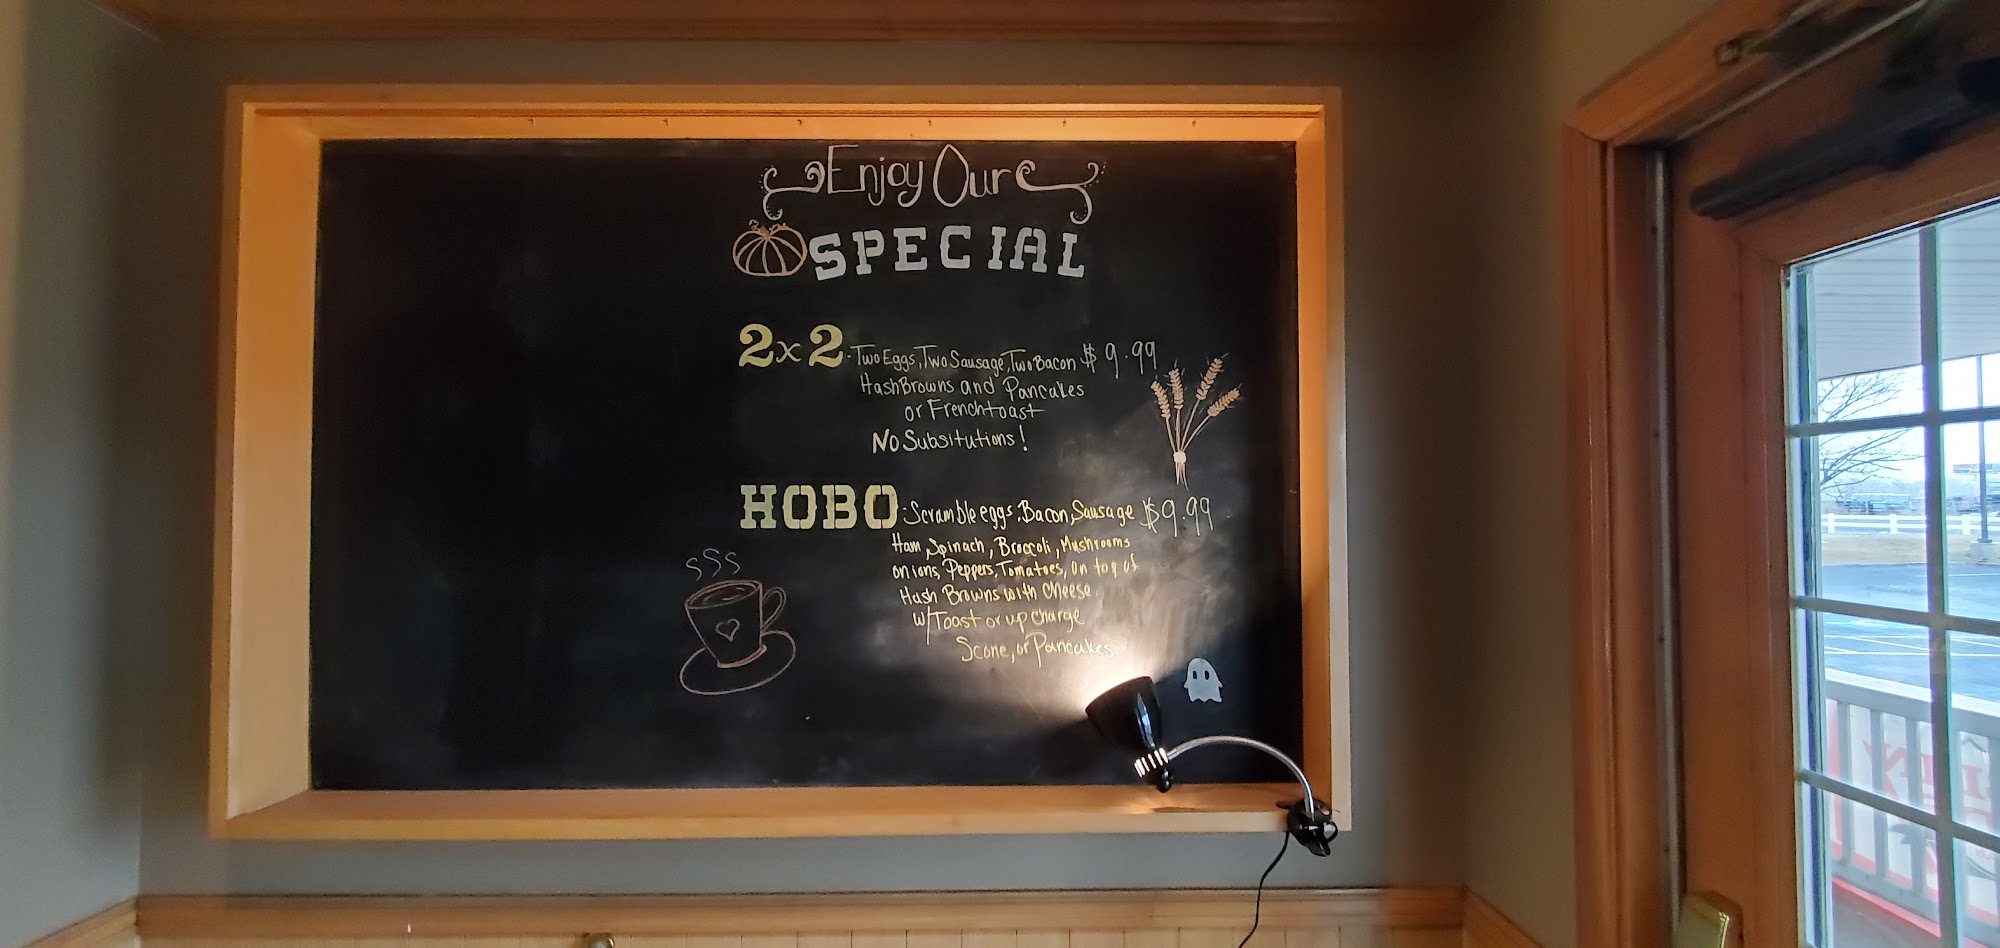 Enjoy Our
SPECIAL
2x2-Two Eggs, Two Sausage, Two Bacon $9.99
HashBrowns and Pancakes
or Frenchtoast
No Subsitutions!
HOBO-Scramble eggs, Bacon, Sausage $9.99
Ham, Spinach, Broccoli, Mushrooms
onions, Peppers, Tomatoes, on top of
Hash Browns with Cheese.
w/Toast or up charge
Scone, or Pancakes